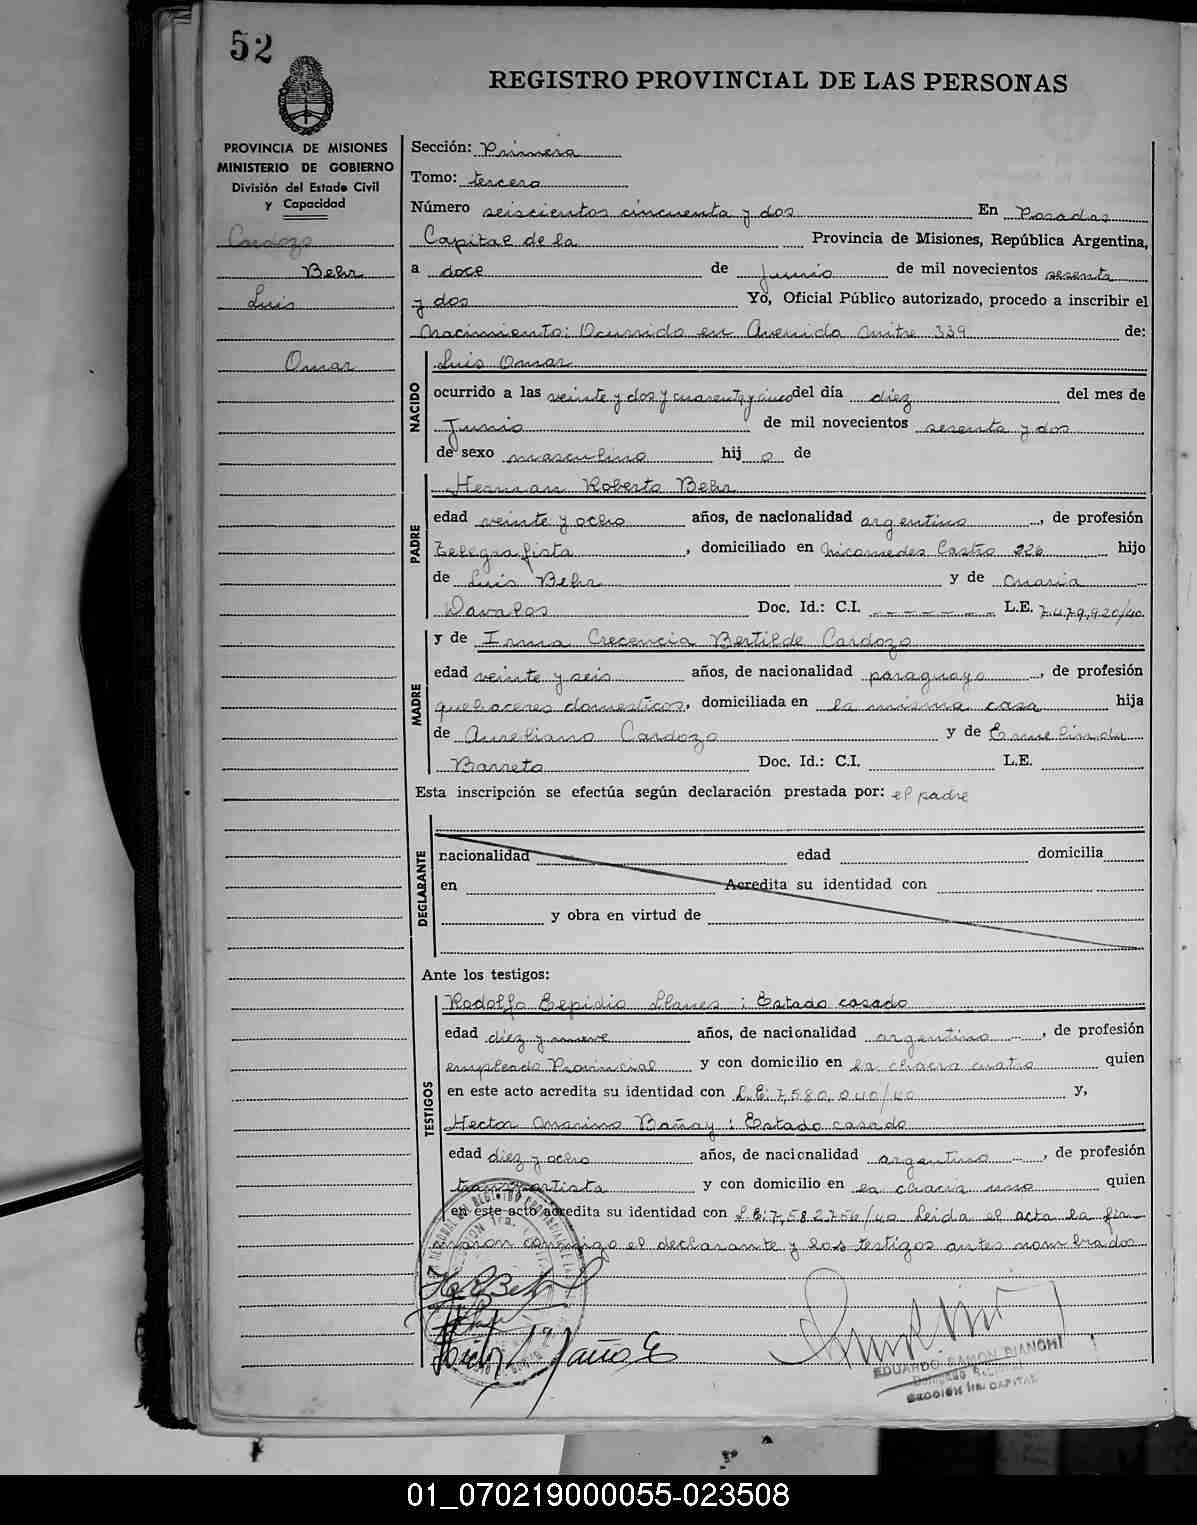 52
REGISTRO PROVINCIAL DE LAS PERSONAS
PROVINCIA DE MISIONES
MINISTERIO DE GOBIERNO
División del Estado Civil
y Capacidad
Cardozo
Behr
Luis
Omar
Sección: Primera
Tomo: tercero
Número seiscientos cincuenta y dos En Posadas
Capital de la Provincia de Misiones, República Argentina,
a doce de Junio de mil novecientos sesenta
y dos Yo, Oficial Público autorizado, procedo a inscribir el
Nacimiento: Ocurrido en Avenida Mitre 339 de:
NACIDO
Luis Omar
ocurrido a las veinte y dos y cuarenta y cinco del día diez del mes de
Junio de mil novecientos sesenta y dos
de sexo masculino hij o de
PADRE
Herman Roberto Behr
edad veinte y ocho años, de nacionalidad argentino, de profesión
Telegrafista, domiciliado en Nicomedes Castro 226 hijo
de Luis Behr y de Maria
Davalos Doc. Id.: C.I. - - - - - - L.E. 7.479,920/40
MADRE
y de Irma Crecencia Bertilde Cardozo
edad veinte y seis años, de nacionalidad paraguayo, de profesión
quehaceres domesticos, domiciliada en la misma casa hija
de Aureliano Cardozo y de Ermelinda
Barreto Doc. Id.: C.I. L.E.
Esta inscripción se efectúa según declaración prestada por: el padre
DECLARANTE
nacionalidad edad domicilia
en Acredita su identidad con
y obra en virtud de
Ante los testigos:
TESTIGOS
Rodolfo Elpidio Llanes: Estado casado
edad diez y nueve años, de nacionalidad argentino, de profesión
empleado Provincial y con domicilio en la chacra cuatro quien
en este acto acredita su identidad con L.E: 7,580,040/40 y,
Hector Marino Bañay: Estado casado
edad diez y ocho años, de nacionalidad argentino, de profesión
transportista y con domicilio en la chacra uno quien
en este acto acredita su identidad con L.E: 7,582756/40 Leida el acta la fir
maron conmigo el declarante y los testigos antes nombrados
EDUARDO RAMON BIANCHI
SECCION 1ra. CAPITAL
01_070219000055-023508